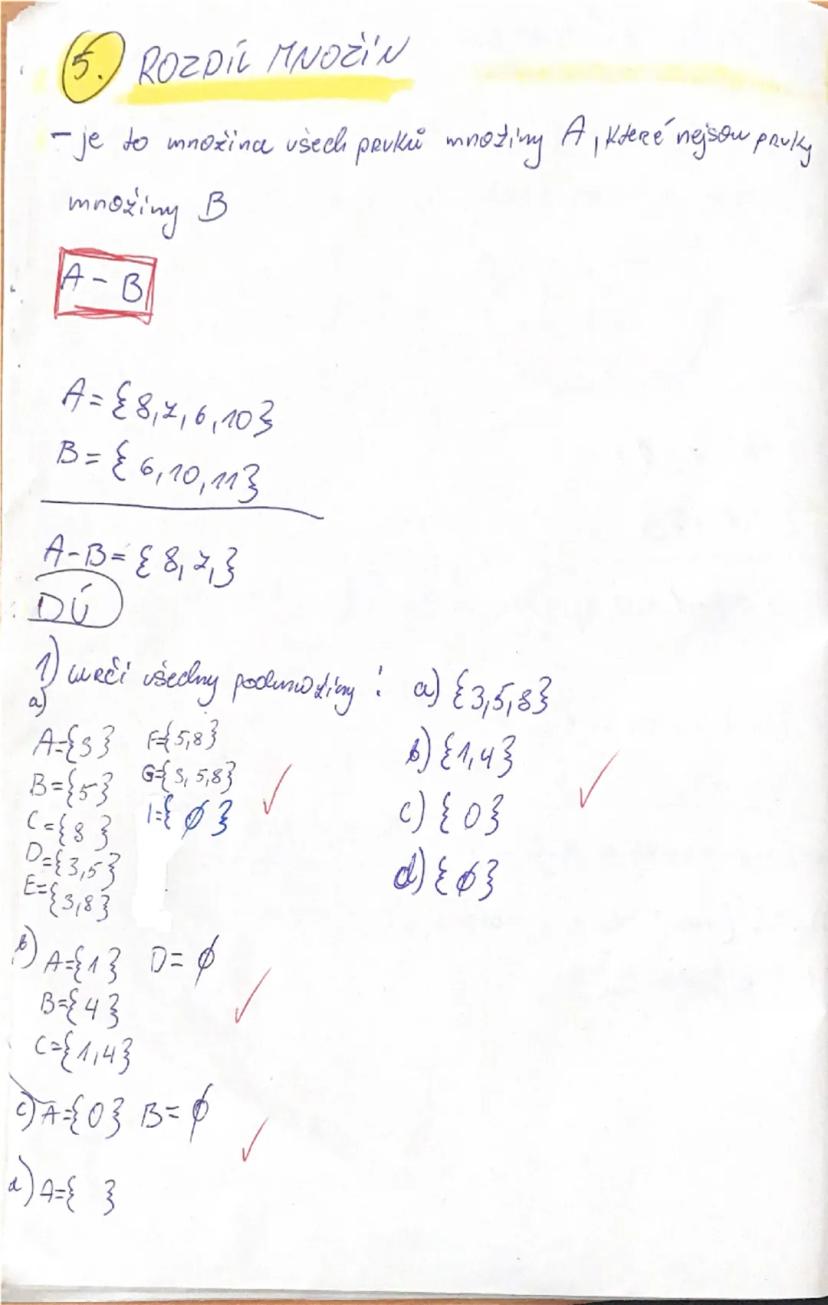 5. ROZDÍL MNOŽIN
- je to množina všech prvků množiny A, které nejsou prvky
množiny B
A - B
A = {8, 7, 6, 10}
B = {6, 10, 11}
A-B = {8, 7,}
DÚ
1) urči všechny podmnožiny: a) {3,5,8}
b) {1,4}
c) {0}
d) {∅}
a)
A={3} F={5,8}
B={5} G={3, 5,8}
C={8} I={∅}
D={3,5}
E={3,8}
b) A={1} D=∅
B={4}
C={1,4}
c) A={0} B=∅
d) A={ }